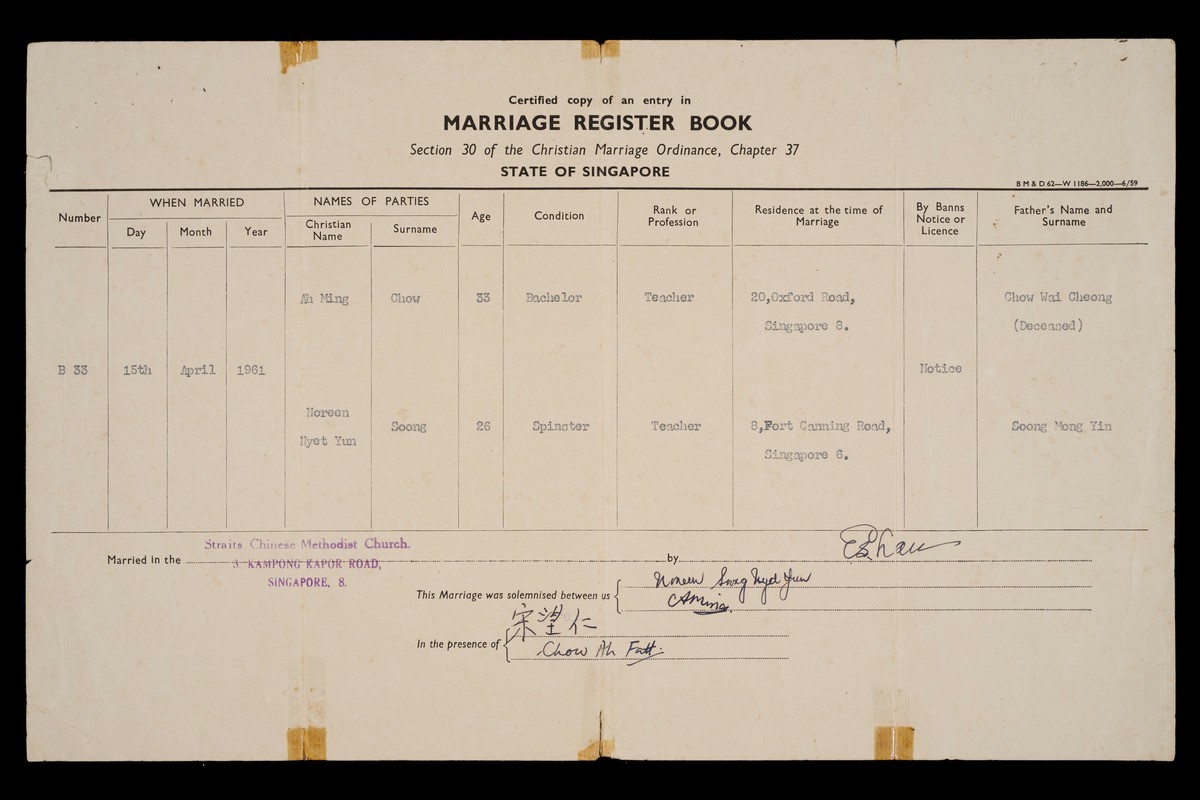 Certified copy of an entry in
MARRIAGE REGISTER BOOK
Section 30 of the Christian Marriage Ordinance, Chapter 37
STATE OF SINGAPORE
B M & D 62—W 1186—2,000—6/59
Number
WHEN MARRIED
Day Month Year
NAMES OF PARTIES
Christian
Name
Surname
Age
Condition
Rank or
Profession
Residence at the time of
Marriage
By Banns
Notice or
Licence
Father's Name and
Surname
Ah Ming Chow 33 Bachelor Teacher 20,Oxford Road, Chow Wai Cheong
Singapore 8. (Deceased)
B 33 15th April 1961 Notice
Noreen
Nyet Yun Soong 26 Spinster Teacher 8,Fort Canning Road, Soong Mong Yin
Singapore 6.
Straits Chinese Methodist Church.
Married in the by
3. KAMPONG KAPOR ROAD,
SINGAPORE, 8.
This Marriage was solemnised between us
Noreen Soong Nyet Yun
In the presence of
宋望仁
Chow Ah Fatt.